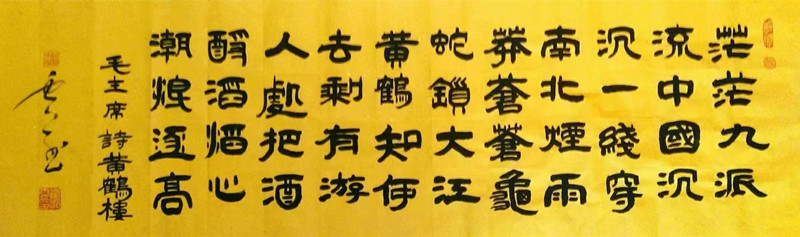 茫茫九派
流中國沉
沉一綫穿
南北煙雨
莽蒼蒼龜
蛇鎖大江
黃鶴知何
去剩有游
人處把酒
酹滔滔心
潮浪逐高
毛主席詩黃鶴樓